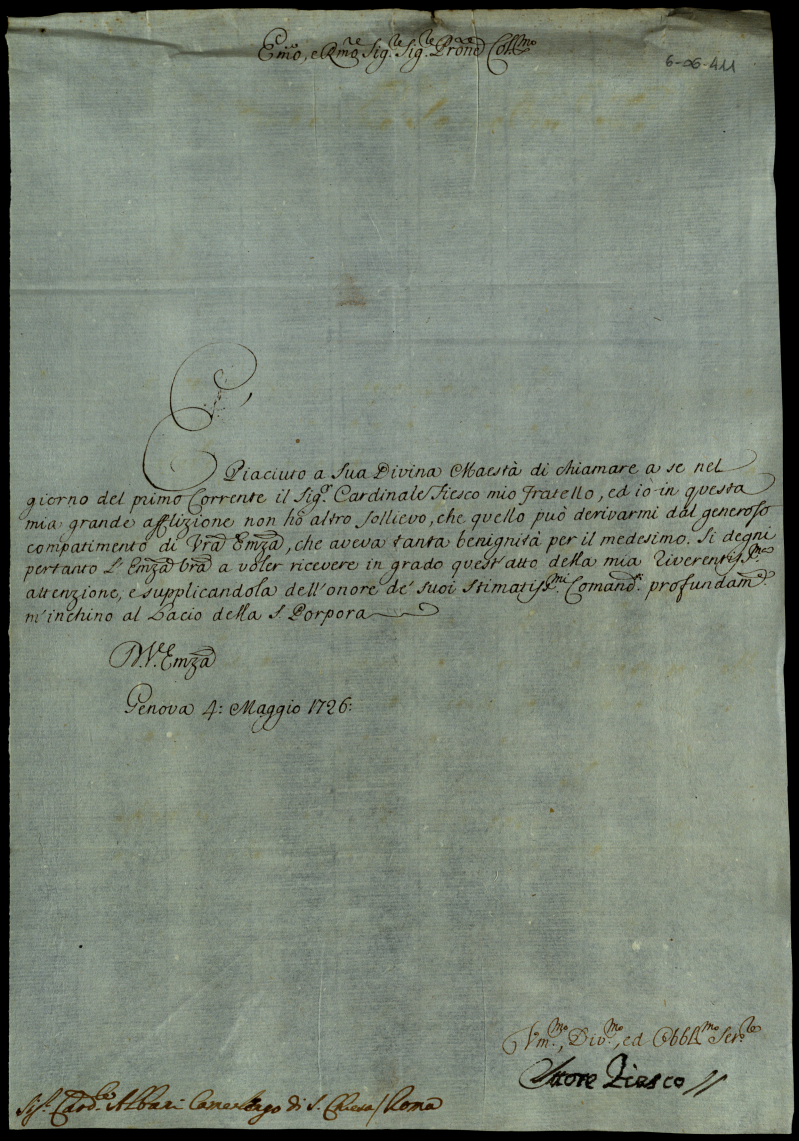 Em̃o, e Rm̃o Sig.re Sig.re Prõne Col.mo
6-26-411
È Piaciuto a Sua Divina Maestà di chiamare a se nel
giorno del primo Corrente il Sig.r Cardinale Fiesco mio Fratello, ed iò in questa
mia grande afflizione non hò altro sollievo, che quello può derivarmi dal generoso
compatimento di Vrã Emzã, che aveva tanta benignità per il medesimo. Si degni
pertanto l'Emzã Vrã a voler ricevere in grado quest'atto della mia riverentiss.ma
attenzione, e supplicandola dell'onore de' suoi stimatiss.mi Comand.i profundam.e
m'inchino al bacio della S. Porpora
D. V.a Emzã
Genova 4: Maggio 1726:
Vm.mo, Div.mo, ed Obbl.mo Ser.re
Ettore Fiesco
Sig.r Card.le Albani Camerlengo di S. Chiesa / Roma